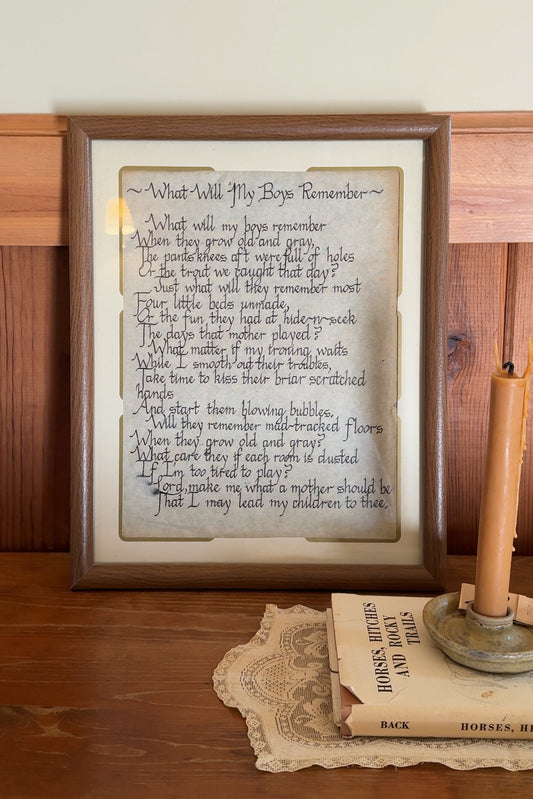 ~What Will My Boys Remember~
What will my boys remember
When they grow old and gray,
The pants knees aft were full of holes
Or the trout we caught that day?
Just what will they remember most
Four little beds unmade,
Or the fun they had at hide-n-seek
The days that mother played?
What matter if my ironing waits
While I smooth out their troubles,
Take time to kiss their briar scratched
hands
And start them blowing bubbles,
Will they remember mud-tracked floors
When they grow old and gray?
What care they if each room is dusted
If I'm too tired to play?
Lord, make me what a mother should be
That I may lead my children to thee.
HORSES, HITCHES
AND ROCKY
TRAILS
BACK
HORSES, HI